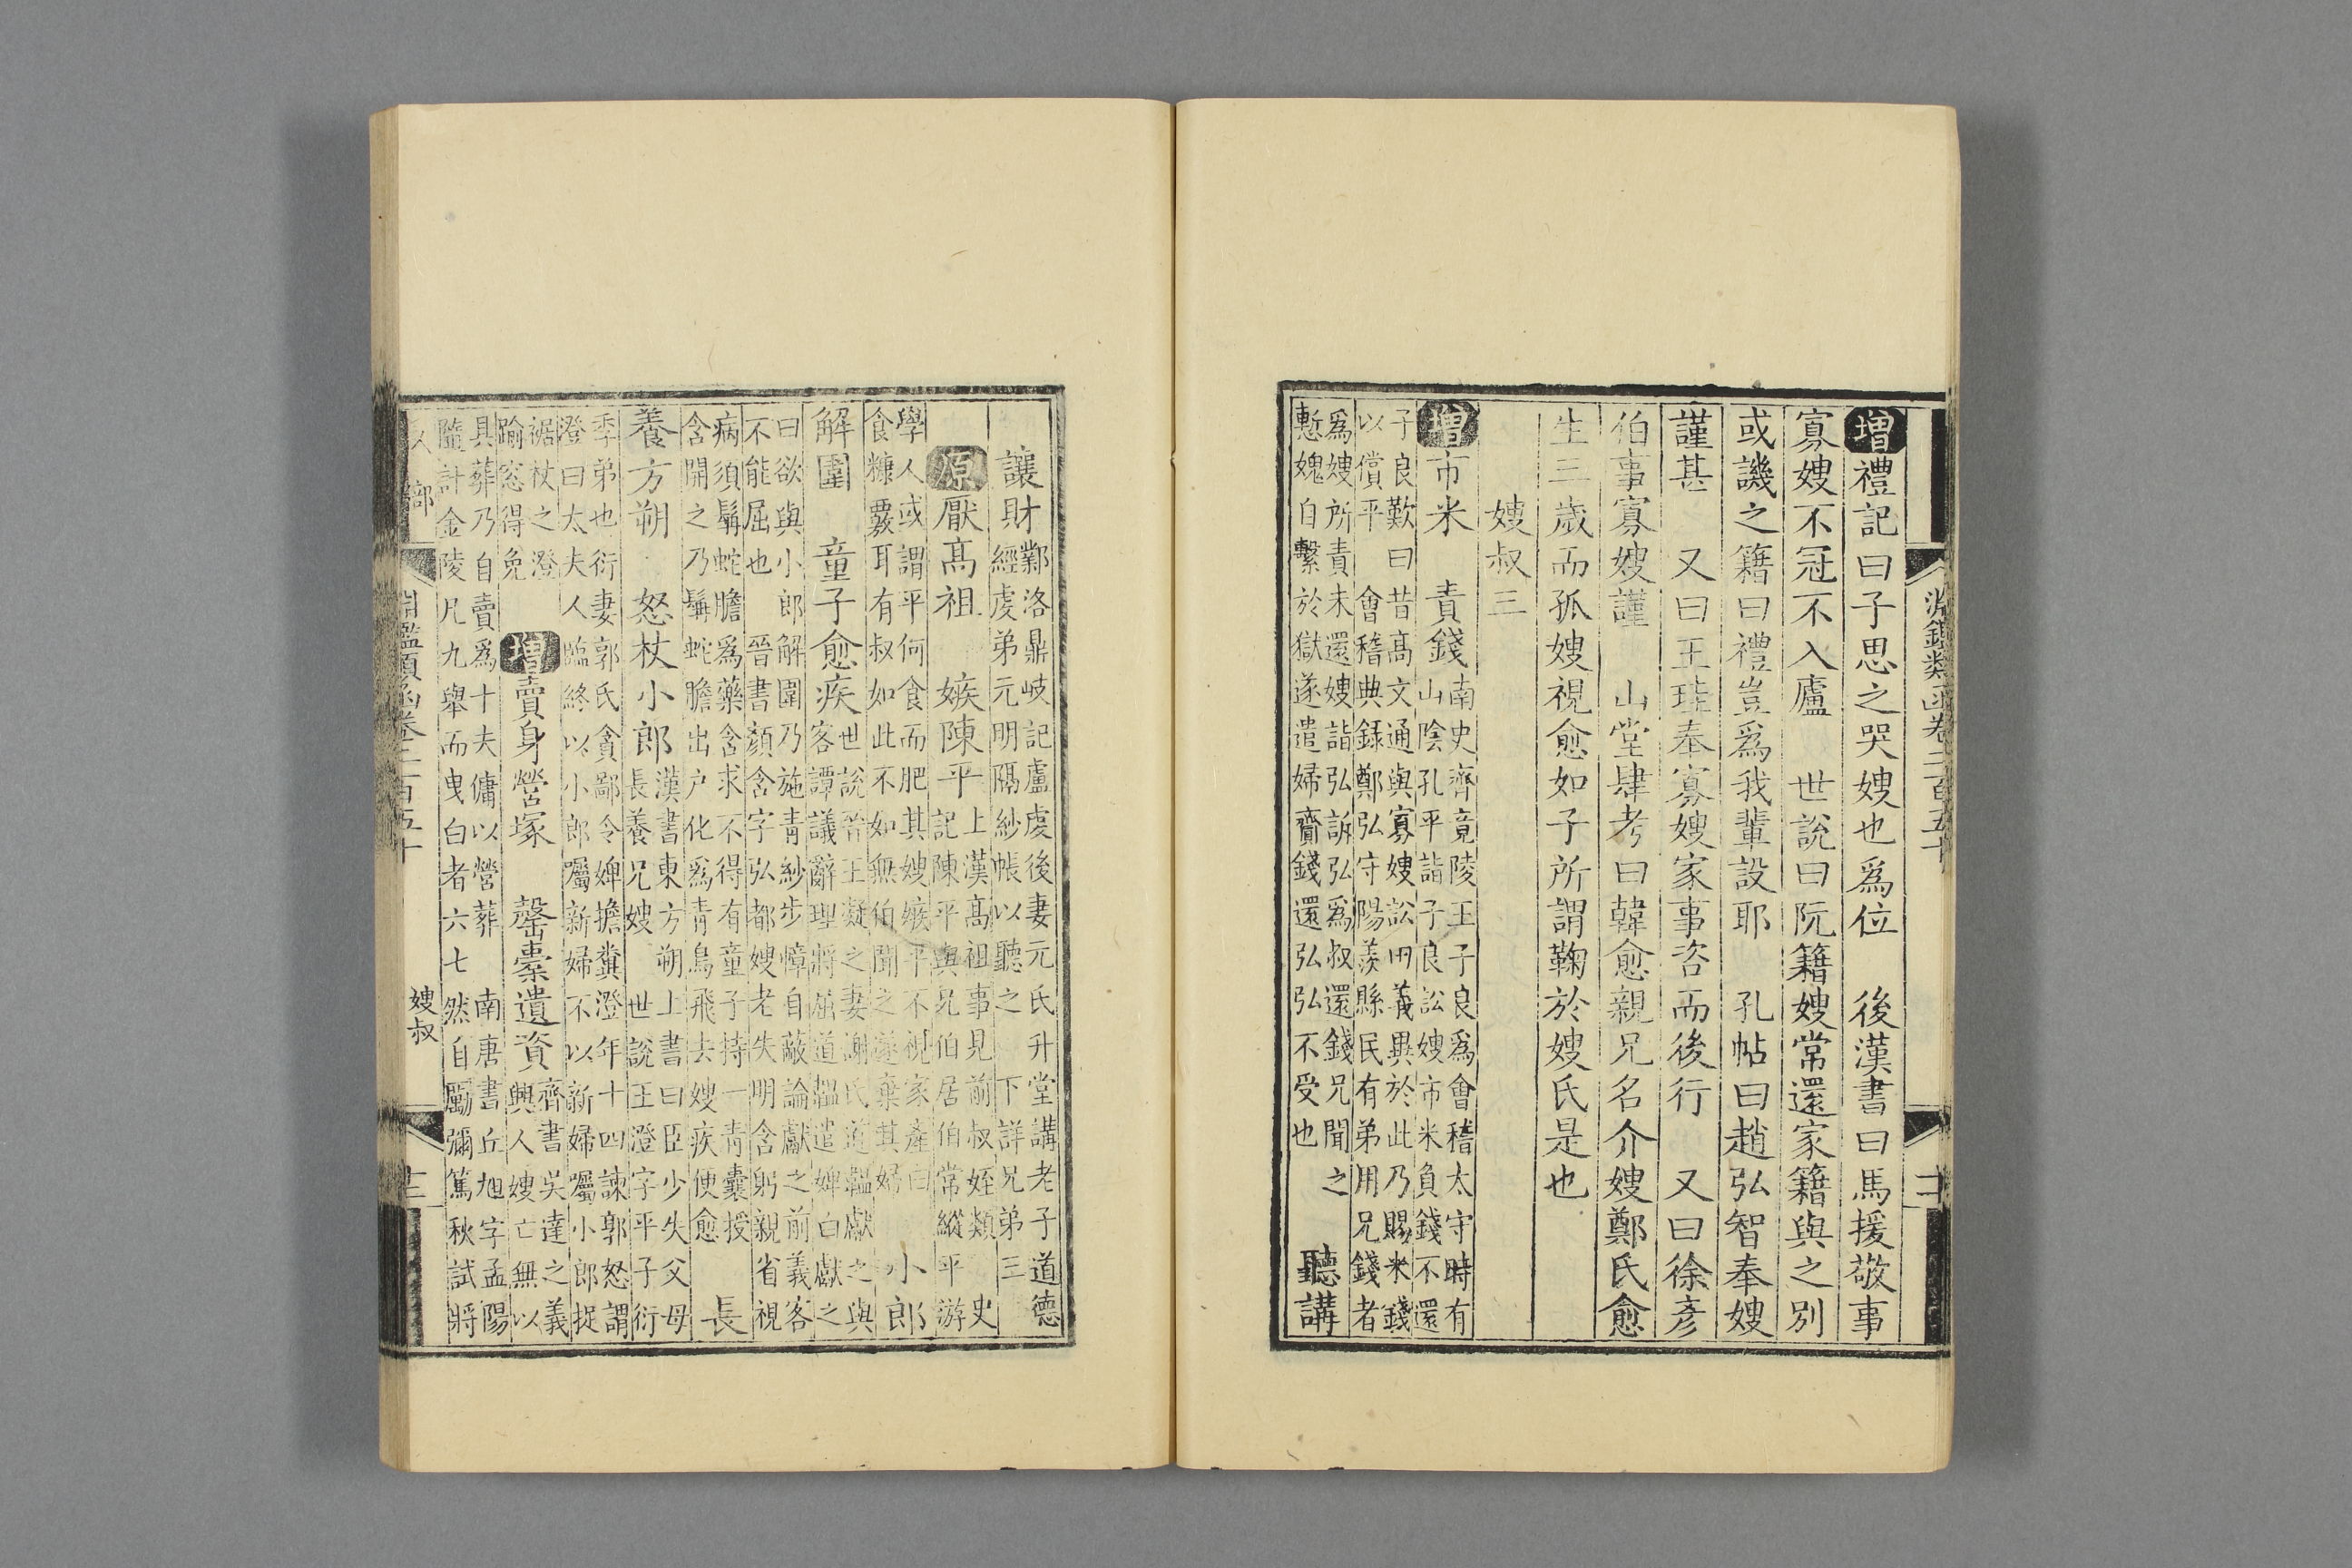 淵鑑類函卷二百五十
增禮記曰子思之哭嫂也爲位　後漢書曰馬援敬事
寡嫂不冠不入廬　世說曰阮籍嫂常還家籍與之別
或譏之籍曰禮豈爲我輩設耶　孔帖曰趙弘智奉嫂
謹甚　又曰王珪奉寡嫂家事咨而後行　又曰徐彥
伯事寡嫂謹　山堂肆考曰韓愈親兄名介嫂鄭氏愈
生三歲而孤嫂視愈如子所謂鞠於嫂氏是也
嫂叔三
增市米　責錢
南史齊竟陵王子良爲會稽太守時有
山陰孔平詣子良訟嫂市米負錢不還
子良歎曰昔髙文通與寡嫂訟田義異於此乃賜米錢
以償平　會稽典録鄭弘守陽羨縣民有弟用兄錢者
爲嫂所責未還嫂詣弘訴弘爲叔還錢兄聞之
慙媿自繫於獄遂遣婦齎錢還弘弘不受也
聽講
讓財
鄴洛鼎峙記盧虔後妻元氏升堂講老子道德
經虔弟元明隔紗帳以聽之　下詳兄弟三
原厭髙祖　嫉陳平
上漢髙祖事見前叔姪類　史
記陳平與兄伯居伯常縱平游
學人或謂平何食而肥其嫂嫉平不視家產曰
食糠覈耳有叔如此不如無伯聞之遂棄其婦
小郎
解圍　童子愈疾
世說晉王凝之妻謝氏道韞獻之與
客譚議辭理將屈道韞遣婢白獻之
曰欲與小郎解圍乃施青紗步幛自蔽論獻之前義客
不能屈也　晉書顏含字弘都嫂老失明含躬親省視
病須髯蛇膽爲藥含求不得有童子持一青囊授
含開之乃髯蛇膽出户化爲青鳥飛去嫂疾便愈
長
養方朔　怒杖小郎
漢書東方朔上書曰臣少失父母
長養兄嫂　世說王澄字平子衍
季弟也衍妻郭氏貪鄙令婢擔糞澄年十四諫郭怒謂
澄曰太夫人臨終以小郎囑新婦不以新婦囑小郎捉
裾杖之澄
踰窓得免
增賣身營塚　罄橐遺資
齊書吳達之義
興人嫂亡無以
具葬乃自賣爲十夫傭以營葬　南唐書丘旭字孟陽
隨計金陵凡九舉而曳白者六七然自勵彌篤秋試將
人部　淵鑑類函卷二百五十　嫂叔